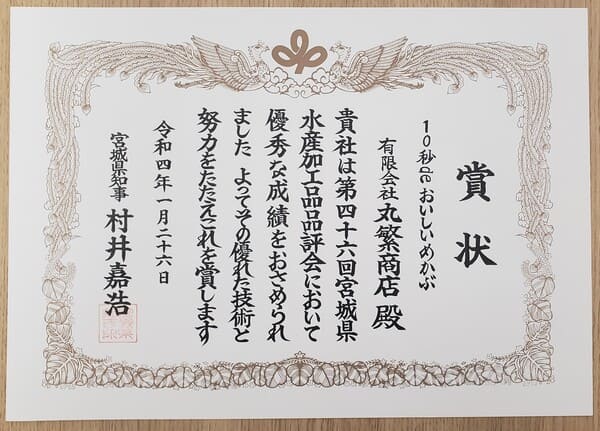 賞状
10秒de おいしいめかぶ
有限会社 丸繁商店 殿
貴社は第四十六回宮城県
水産加工品品評会において
優秀な成績をおさめられ
ました よってその優れた技術と
努力をたたえこれを賞します
令和四年一月二十六日
宮城県知事 村井嘉浩